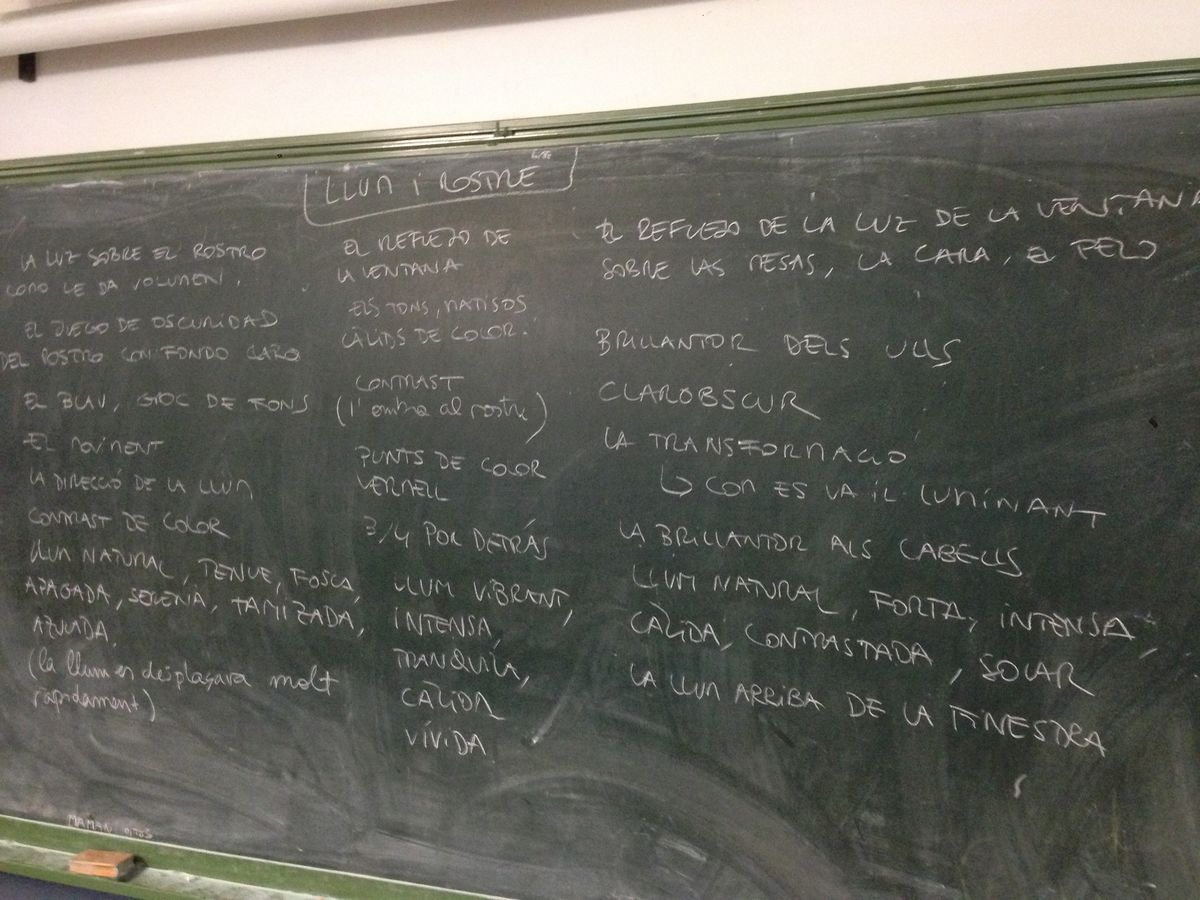 LLUM i ROSTRE
LA LUZ SOBRE EL ROSTRO
COMO LE DA VOLUMEN,
EL JUEGO DE OSCURIDAD
DEL ROSTRO CON FONDO CLARO
EL BLAU, GROC DE FONS
EL MOVIMENT
LA DIRECCIÓ DE LA LLUM
CONTRAST DE COLOR
LLUM NATURAL, TENUE, FOSCA,
APAGADA, SERENA, TAMIZADA,
AZULADA,
(la llum es desplaçava molt
ràpidament)
EL REFLEJO DE
LA VENTANA
ELS TONS, MATISOS
CÀLIDS DE COLOR.
CONTRAST
(l'ombra al rostre)
PUNTS DE COLOR
VERMELL
3/4 POR DETRÁS
LLUM VIBRANT,
INTENSA,
TRANQUILA,
CÀLIDA
VÍVIDA
EL REFLEJO DE LA LUZ DE LA VENTANA
SOBRE LAS MESAS, LA CARA, EL PELO
BRILLANTOR DELS ULLS
CLAROBSCUR
LA TRANSFORMACIO
↳ COM ES VA IL·LUMINANT
LA BRILLANTOR ALS CABELLS
LLUM NATURAL, FORTA, INTENSA,
CÀLIDA, CONTRASTADA, SOLAR
LA LLUM ARRIBA DE LA FINESTRA
MAMAN